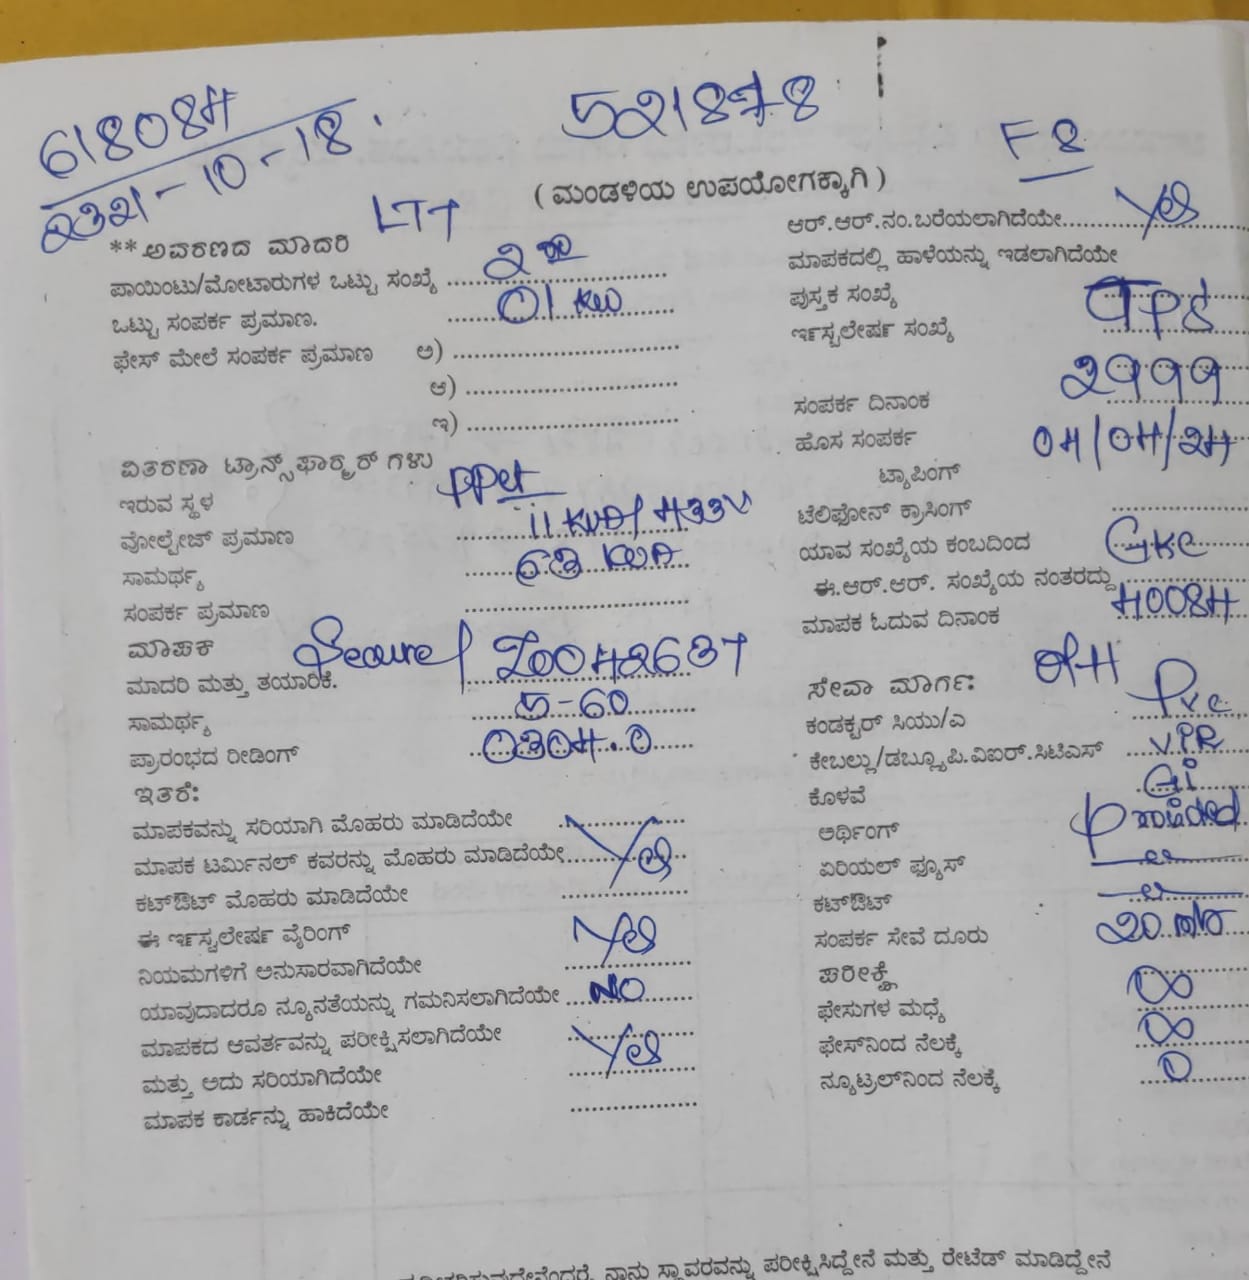 618084
2321-10-18.
521878
F8
( ಮಂಡಳಿಯ ಉಪಯೋಗಕ್ಕಾಗಿ )
**ಅವರಣದ ಮಾದರಿ LT7
ಪಾಯಿಂಟು/ಮೋಟಾರುಗಳ ಒಟ್ಟು ಸಂಖ್ಯೆ 2
ಒಟ್ಟು ಸಂಪರ್ಕ ಪ್ರಮಾಣ. 01 KW
ಫೇಸ್ ಮೇಲೆ ಸಂಪರ್ಕ ಪ್ರಮಾಣ ಅ)
ಆ)
ಇ)
ವಿತರಣಾ ಟ್ರಾನ್ಸ್‌ಫಾರ್‍ಮರ್ ಗಳು
ಇರುವ ಸ್ಥಳ
ವೋಲ್ಟೇಜ್ ಪ್ರಮಾಣ 11 KVA/433V
ಸಾಮರ್ಥ್ಯ 63 KVA
ಸಂಪರ್ಕ ಪ್ರಮಾಣ
ಮಾಪಕ
ಮಾದರಿ ಮತ್ತು ತಯಾರಿಕೆ. Secure/ Z0042637
ಸಾಮರ್ಥ್ಯ 5-60
ಪ್ರಾರಂಭದ ರೀಡಿಂಗ್ 0304.0
ಇತರೆ:
ಮಾಪಕವನ್ನು ಸರಿಯಾಗಿ ಮೊಹರು ಮಾಡಿದೆಯೇ
ಮಾಪಕ ಟರ್ಮಿನಲ್ ಕವರನ್ನು ಮೊಹರು ಮಾಡಿದೆಯೇ Yes
ಕಟ್‌ಔಟ್ ಮೊಹರು ಮಾಡಿದೆಯೇ
ಈ ಇನ್‌ಸ್ಟಲೇಷನ್ ವೈರಿಂಗ್
ನಿಯಮಗಳಿಗೆ ಅನುಸಾರವಾಗಿದೆಯೇ Yes
ಯಾವುದಾದರೂ ನ್ಯೂನತೆಯನ್ನು ಗಮನಿಸಲಾಗಿದೆಯೇ NO
ಮಾಪಕದ ಆವರ್ತವನ್ನು ಪರೀಕ್ಷಿಸಲಾಗಿದೆಯೇ
ಮತ್ತು ಅದು ಸರಿಯಾಗಿದೆಯೇ Yes
ಮಾಪಕ ಕಾರ್ಡನ್ನು ಹಾಕಿದೆಯೇ
ಆರ್.ಆರ್.ನಂ.ಬರೆಯಲಾಗಿದೆಯೇ Yes
ಮಾಪಕದಲ್ಲಿ ಹಾಳೆಯನ್ನು ಇಡಲಾಗಿದೆಯೇ
ಪುಸ್ತಕ ಸಂಖ್ಯೆ
ಇನ್‌ಸ್ಟಲೇಷನ್ ಸಂಖ್ಯೆ
2999
ಸಂಪರ್ಕ ದಿನಾಂಕ
ಹೊಸ ಸಂಪರ್ಕ 04/04/24
ಟ್ಯಾಪಿಂಗ್
ಟೆಲಿಫೋನ್ ಕ್ರಾಸಿಂಗ್
ಯಾವ ಸಂಖ್ಯೆಯ ಕಂಬದಿಂದ
ಈ.ಆರ್.ಆರ್. ಸಂಖ್ಯೆಯ ನಂತರದ್ದು
ಮಾಪಕ ಓದುವ ದಿನಾಂಕ 40084
ಸೇವಾ ಮಾರ್ಗ: O/H
ಕಂಡಕ್ಟರ್ ಸಿಯು/ಎ Pvc
ಕೇಬಲ್ಲು/ಡಬ್ಲ್ಯೂಪಿ.ವಿಐಆರ್.ಸಿಟಿಎಸ್ VPR
ಕೊಳವೆ Gi
ಅರ್ಥಿಂಗ್ Provided
ಏರಿಯಲ್ ಫ್ಯೂಸ್
ಕಟ್‌ಔಟ್
ಸಂಪರ್ಕ ಸೇವೆ ದೂರು 20
ಪರೀಕ್ಷೆ
ಫೇಸುಗಳ ಮಧ್ಯೆ ∞
ಫೇಸ್‌ನಿಂದ ನೆಲಕ್ಕೆ ∞
ನ್ಯೂಟ್ರಲ್‌ನಿಂದ ನೆಲಕ್ಕೆ 0
ನಾನು ಸ್ಥಾವರವನ್ನು ಪರೀಕ್ಷಿಸಿದ್ದೇನೆ ಮತ್ತು ರೇಟೆಡ್ ಮಾಡಿದ್ದೇನೆ